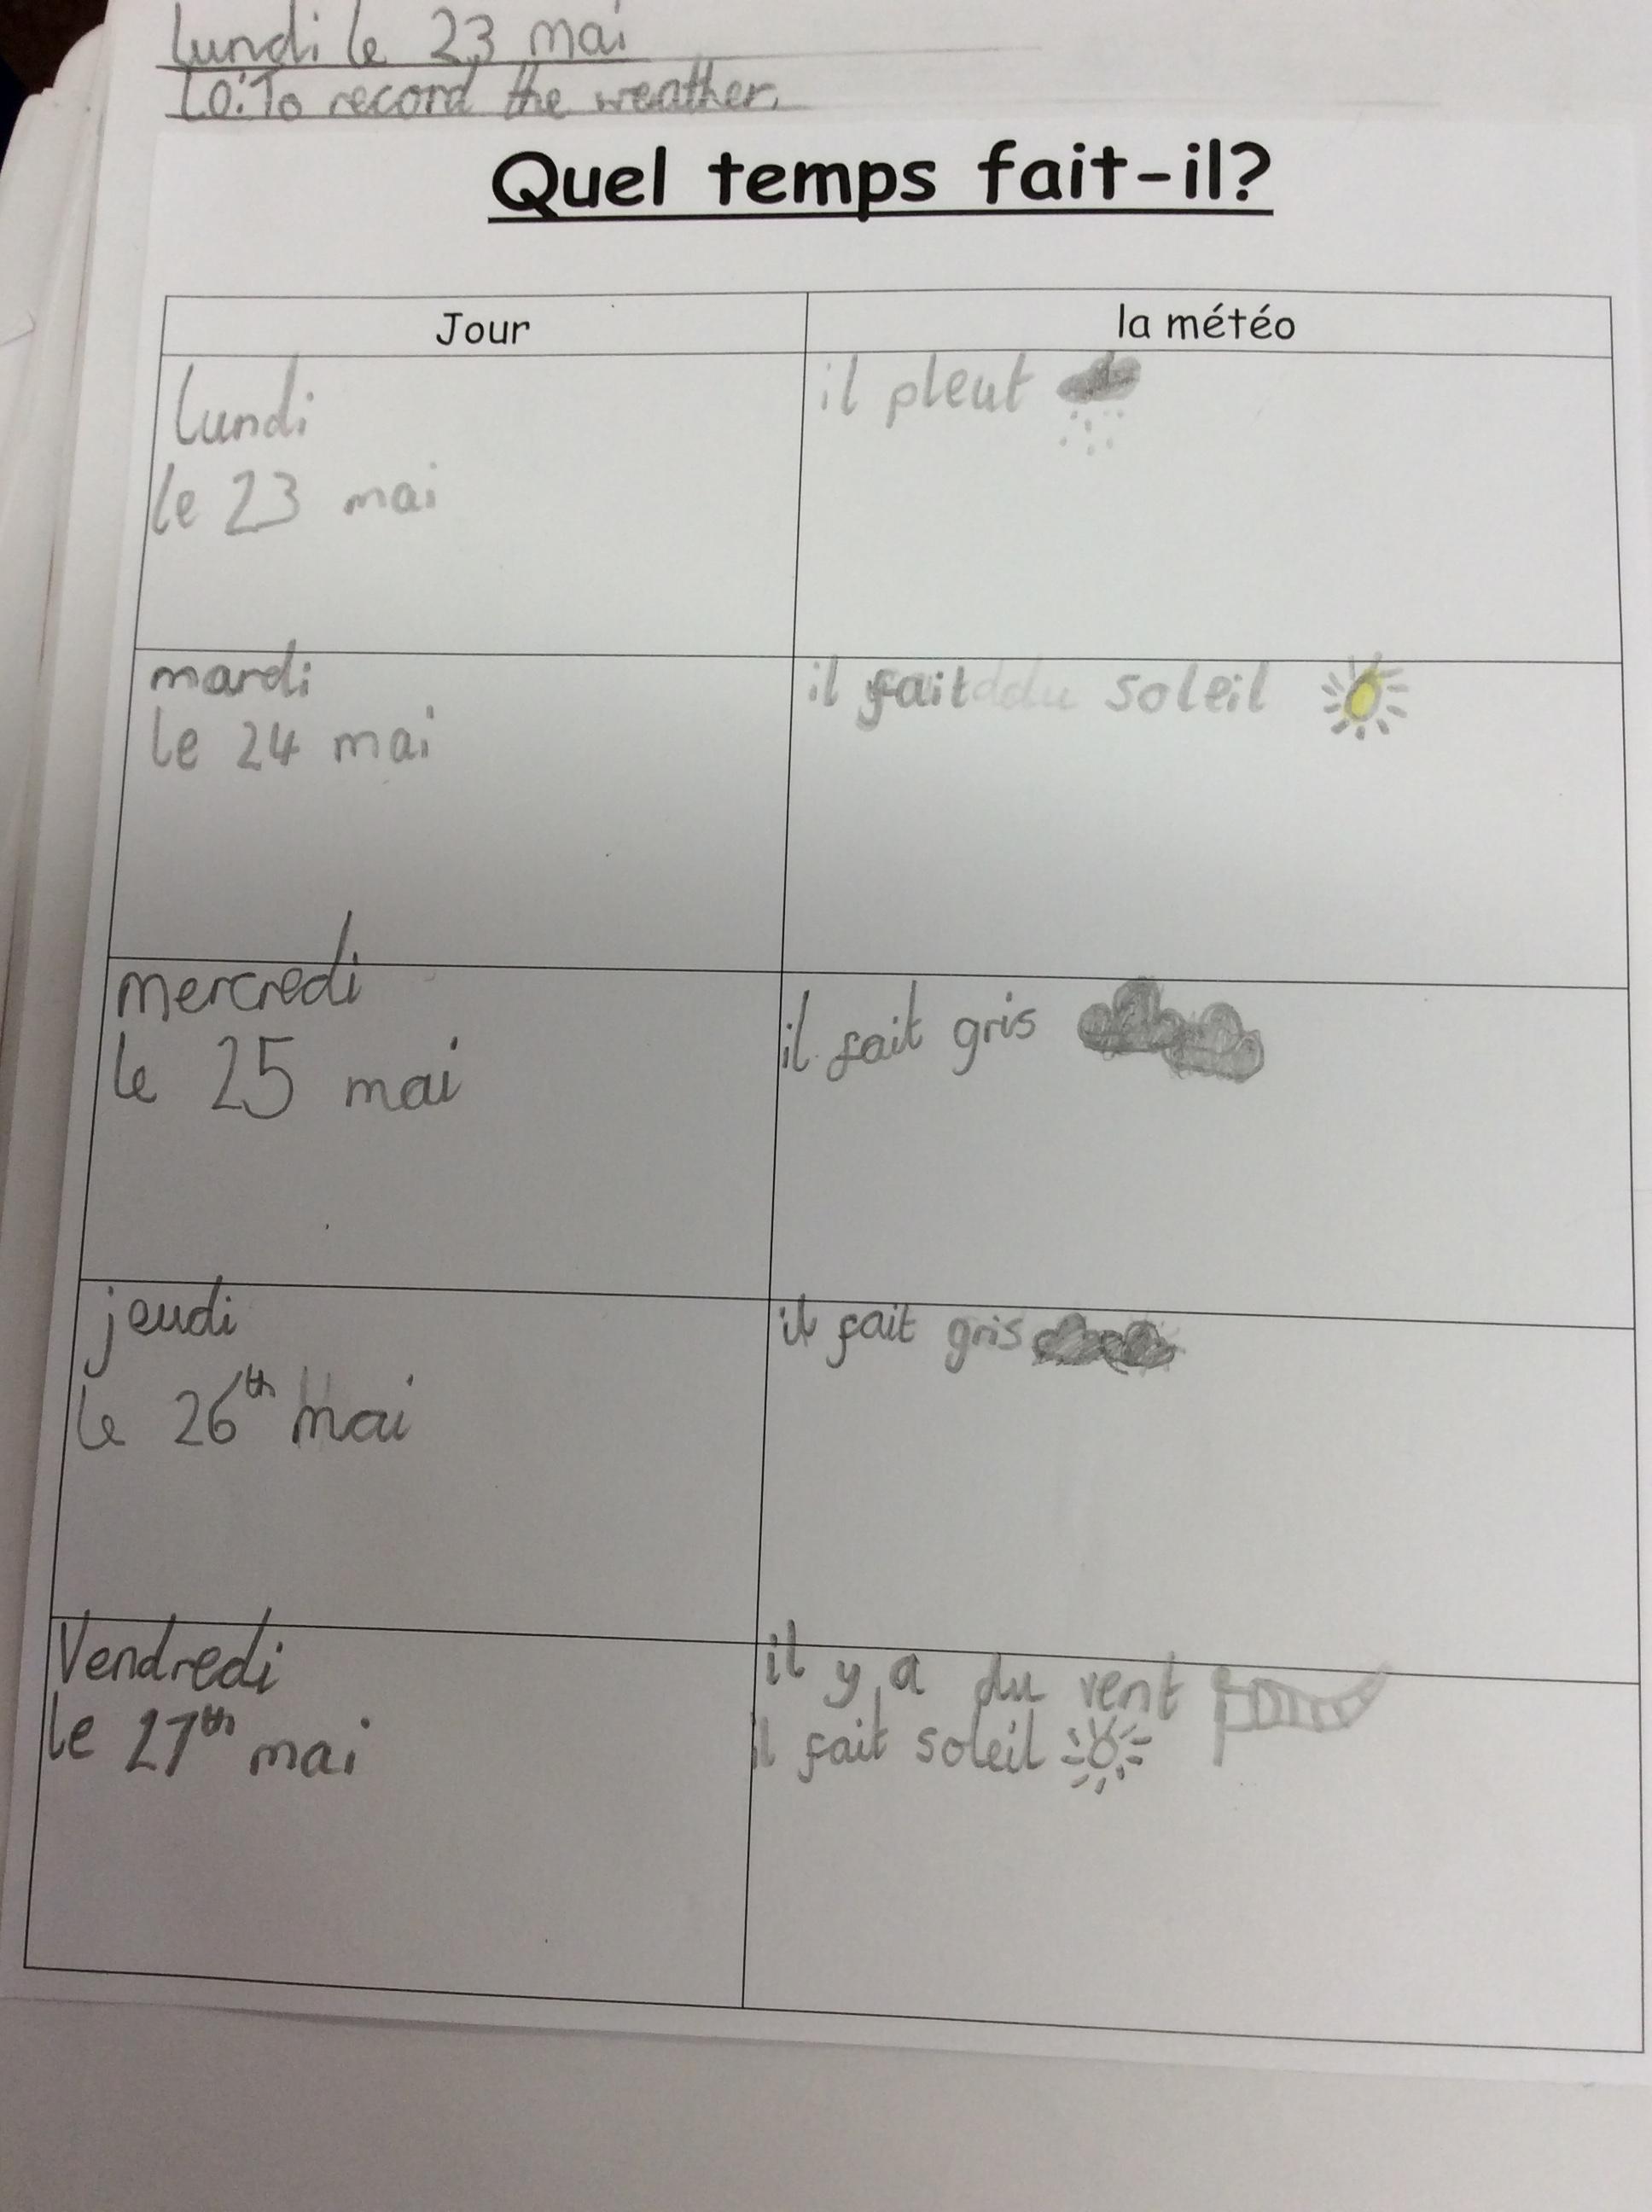 Lundi le 23 mai
LO: To record the weather.
Quel temps fait-il?
Jour
la météo
lundi
le 23 mai
il pleut
mardi
le 24 mai
il fait du soleil
mercredi
le 25 mai
il fait gris
jeudi
le 26th mai
il fait gris
Vendredi
le 27th mai
il y a du vent
il fait soleil